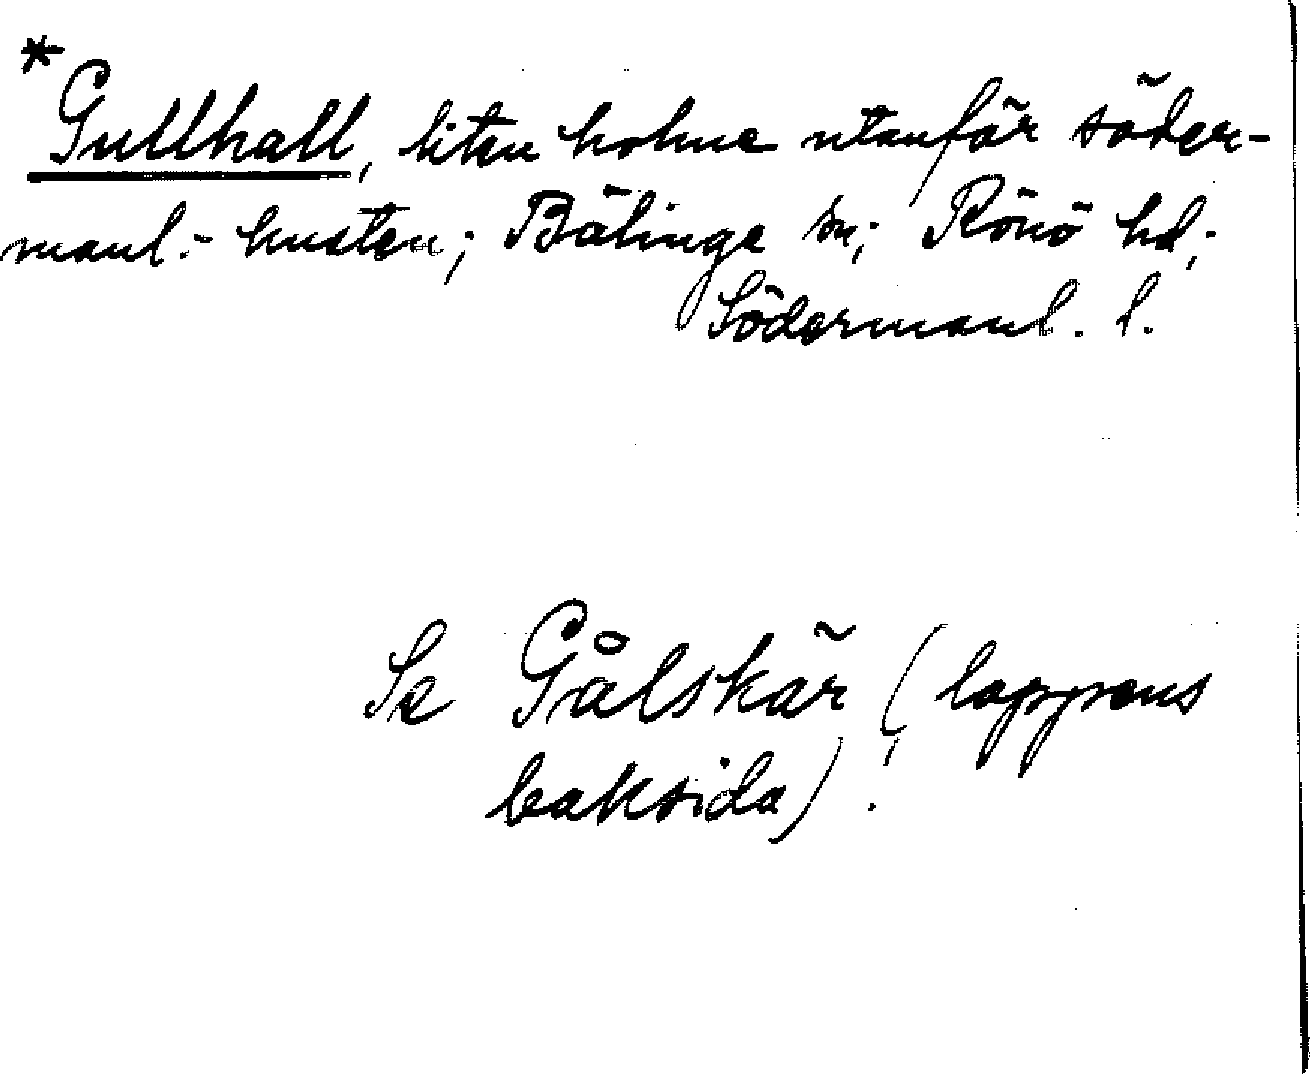 *Gullhall, liten holme utanför söder-
manl.- kusten; Bälinge sn; Rönö hd;
Södermanl. l.
Se Gålskär (lappens
baksida).